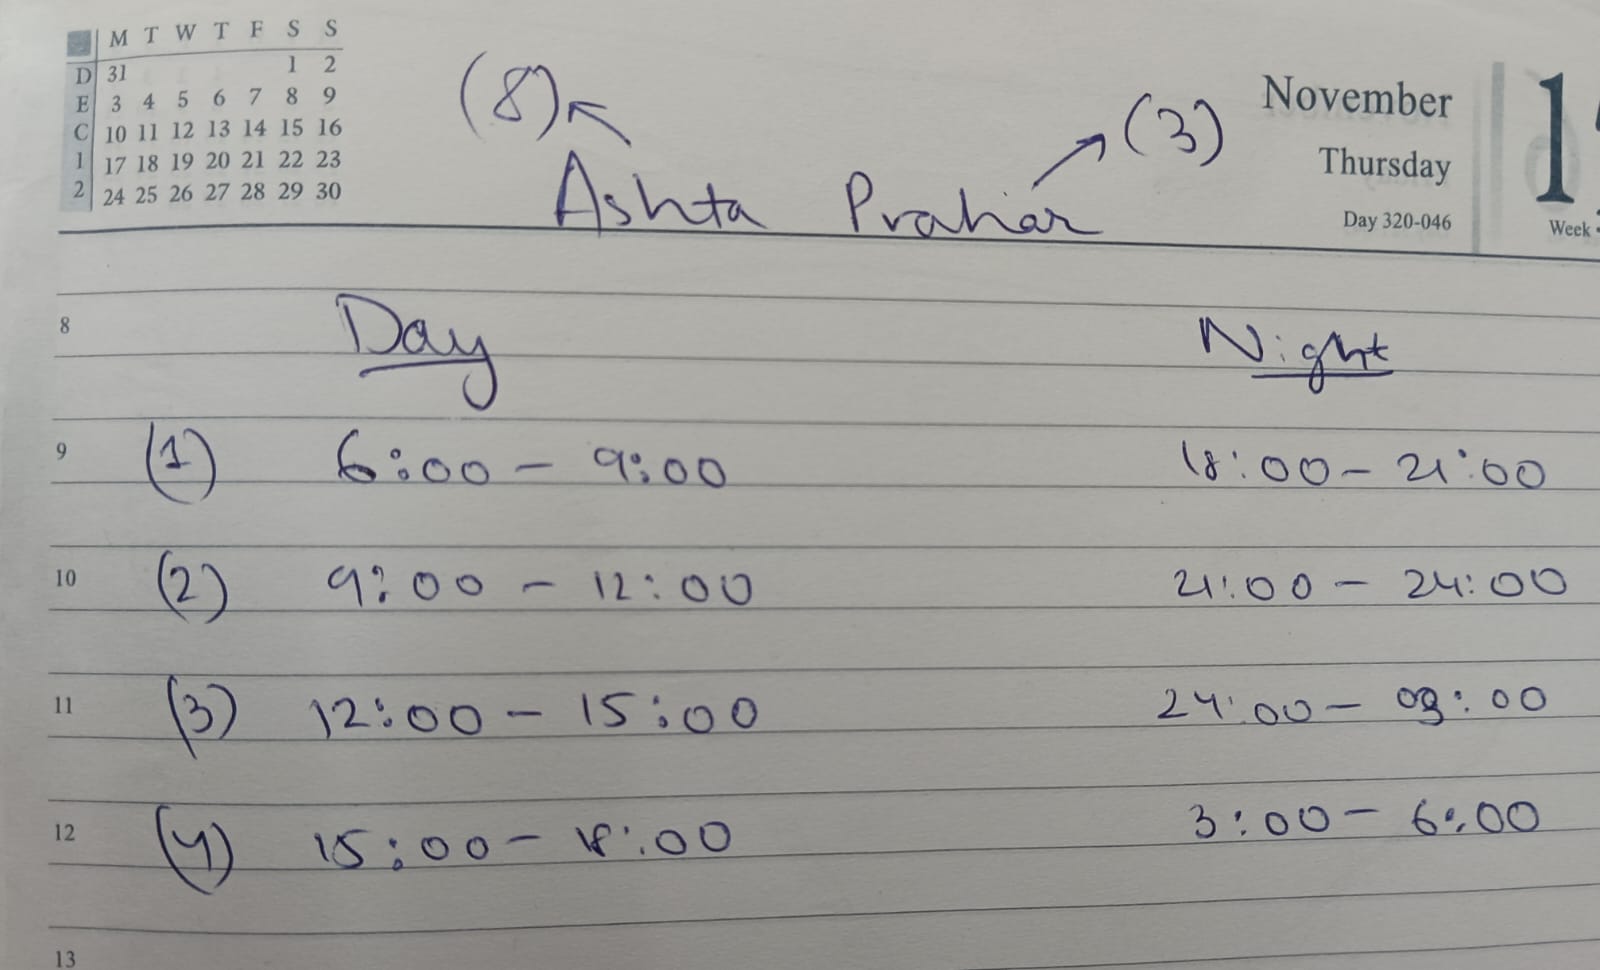 M T W T F S S
D 31 1 2
E 3 4 5 6 7 8 9
C 10 11 12 13 14 15 16
1 17 18 19 20 21 22 23
2 24 25 26 27 28 29 30
November
Thursday
Day 320-046
Week
(8) (3)
Ashta Prahar
8 Day Night
9 (1) 6:00 - 9:00 18:00 - 21:00
10 (2) 9:00 - 12:00 21:00 - 24:00
11 (3) 12:00 - 15:00 24:00 - 03:00
12 (4) 15:00 - 18:00 3:00 - 6:00
13